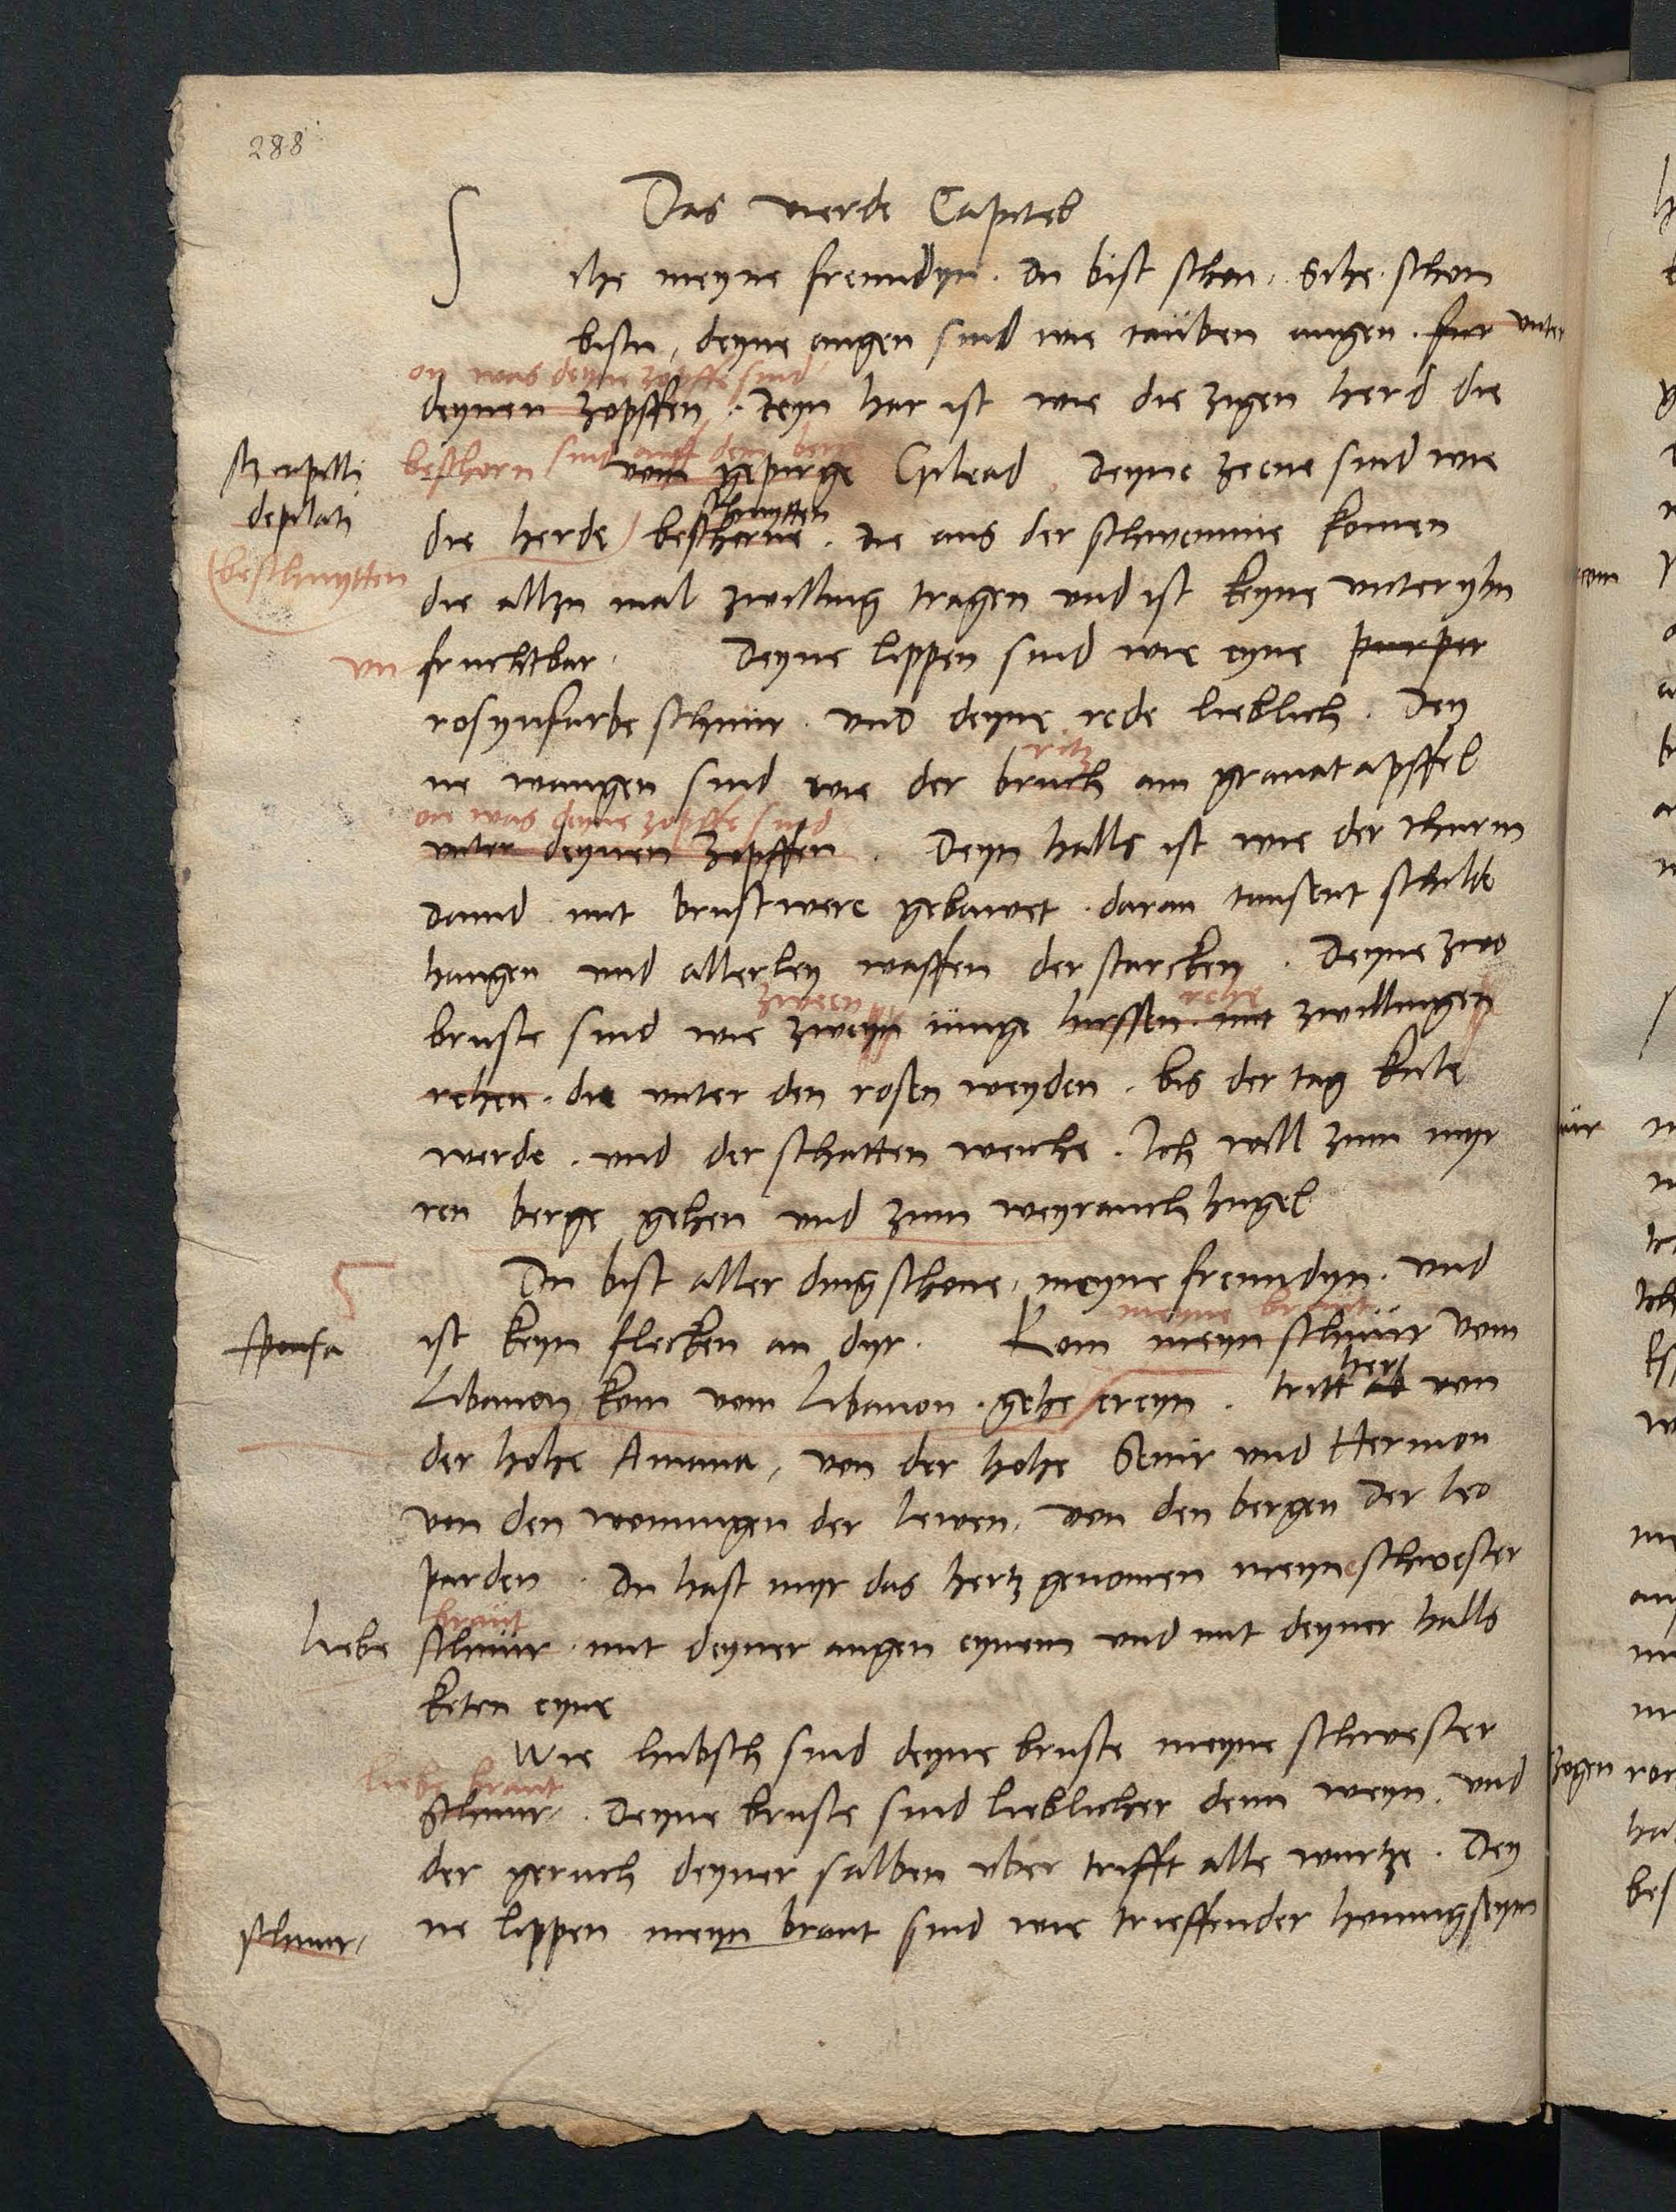 288
Das vierde Capitel
S
ihe meyne freundyn. du bist schon. Sihe. schon
bistu, deyne augen sind wie tauben augen. fur unter
on was deyne zopffe sind
deynen zopffen. Deyn har ist wie die zigen herd die
beschorn sind auff dem berge
vom gepirge Gilead Deyne zeene sind wie
depilati
schnytten
die herde beschorne. die aus der schwemme komen
(beschnytten
die allzu mal zwilling tragen und ist keyne unter yhn
un fruchtbar. Deyne lippen sind wie eyne purper
rosynfarbe schnur. und deyne rede lieblich. Dey
ritz
ne wangen sind wie der bruch am granatapffel
on was deyne zopffe sind
unter deynen zopffen. Deyn halls ist wie der thurm
Dauid mit brustwere gebawet. daran tausent schilde
hangen und allerley waffen der starcken. Deyne zwo
zween rehe
bruste sind wie zweyn iunge hirssen mit zwillingen
rehen. die unter den rosen weyden. bis der tag kule
werde. und der schatten weiche. Ich will zum myr
ren berge gehen und zum weyrauch hugel
Du bist aller ding schone, meyne freundyn. und
meyne braut
sponsa ist keyn flecken an dyr. Kom meyn schnur vom
her
Libanon kom vom Libanon. gehe ereyn. tritt ab von
der hohe Amana, von der hohe Senir und Hermon
von den wonungen der lewen, von den bergen der leo
parden. Du hast myr das hertz genomen meyne schwester
braut
liebe schnur. mit deyner augen eynem und mit deyner halls
keten eyne
Wie hubsch sind deyne bruste meyne schwester
liebe braut
Schnur. Deyne bruste sind lieblicher denn weyn. und
der geruch deyner salben uber trifft alle wurtze. Dey
schnur, ne lippen meyn braut sind wie trieffender honnigseym